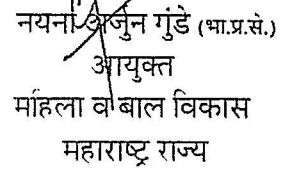 नयना अर्जुन गुंडे (भा.प्र.से.)
आयुक्त
महिला व बाल विकास
महाराष्ट्र राज्य